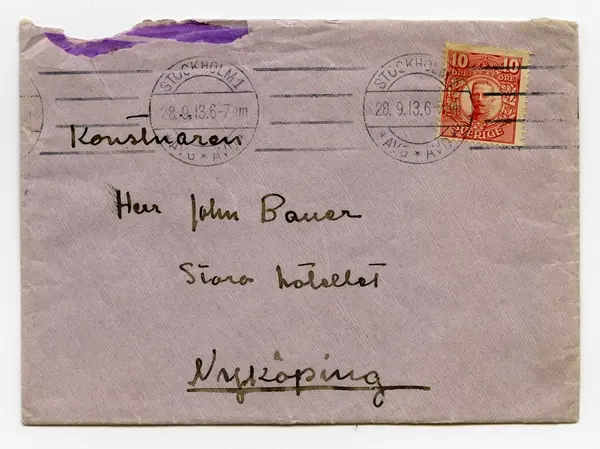 STOCKHOLM 1
28.9.13.6-7em
* AVG * AVD
STOCKHOLM 1
28.9.13.6-7em
* AVG * AVD
10 10
ÖRE ÖRE
SVERIGE
Konstnären
Herr John Bauer
Stora hotellet
Nyköping